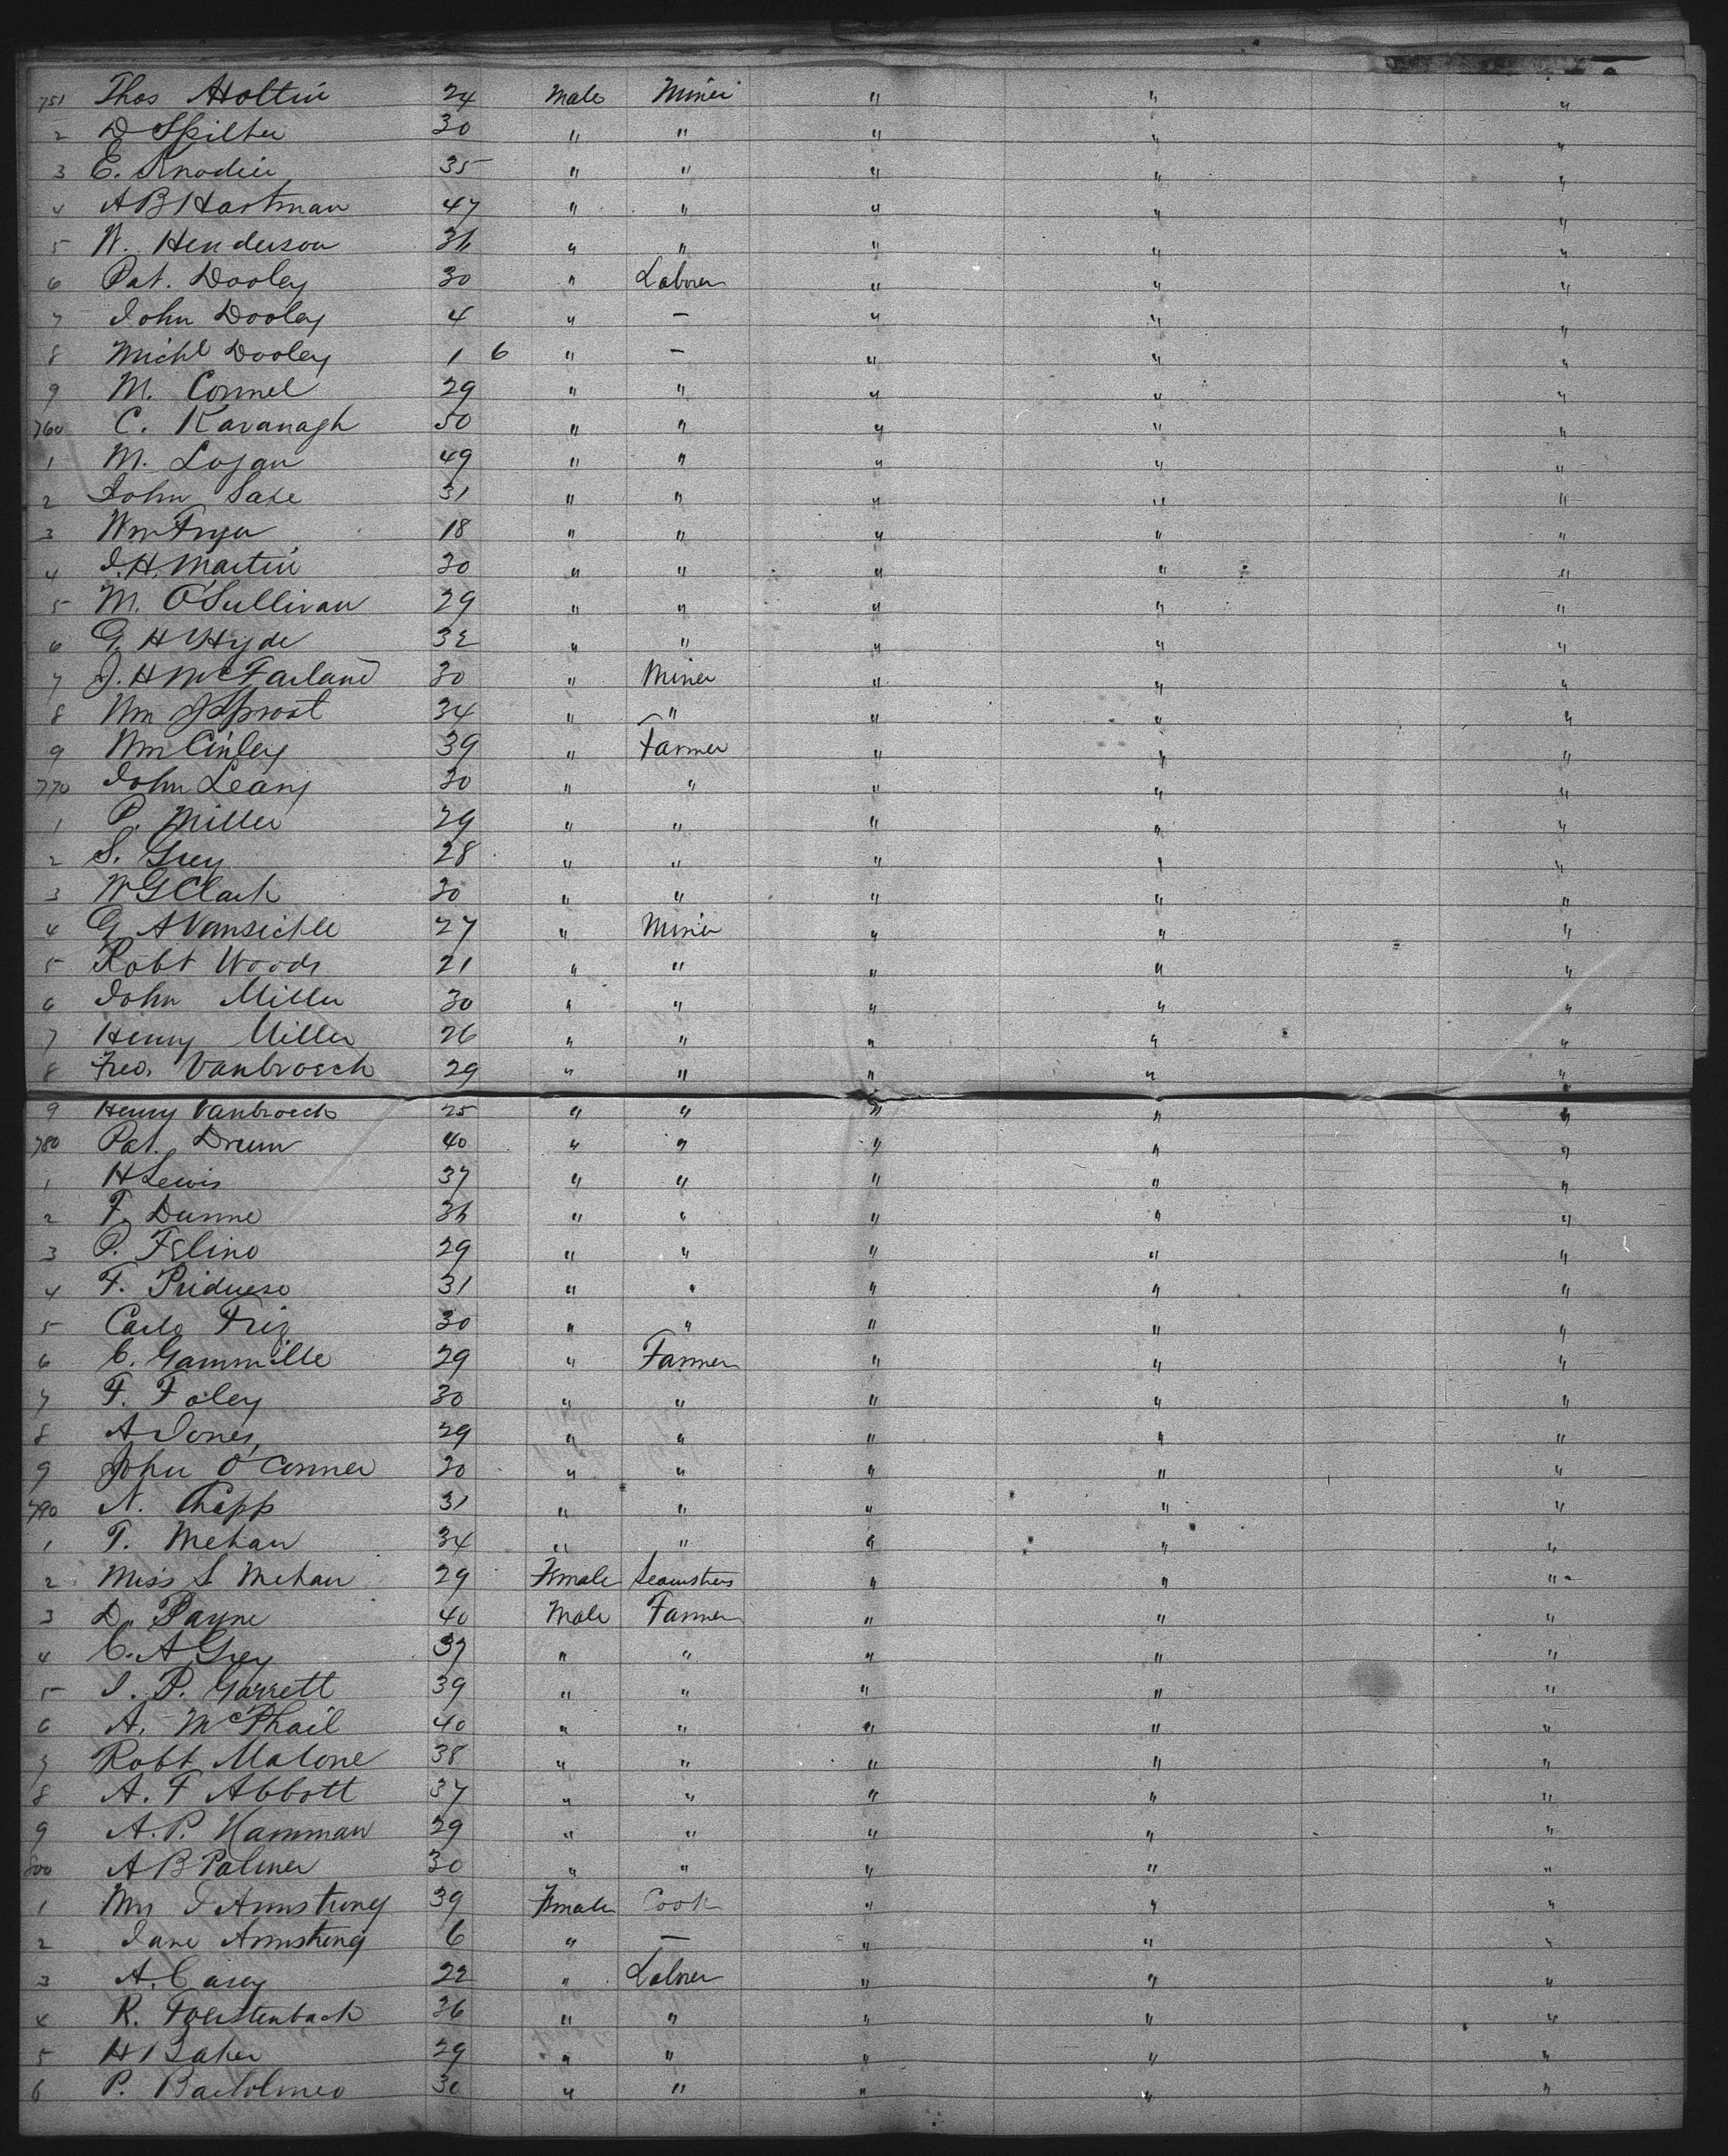 751 Thos Holtin 24 Male Miner " " "
2 D Spilter 30 " " " " "
3 E. Knodin 35 " " " " "
4 A B Hartman 47 " " " " "
5 W. Henderson 36 " " " " "
6 Pat. Dooley 30 " Laborer " " "
7 John Dooley 4 " — " " "
8 Michl Dooley 1 6 " — " " "
9 M. Connel 29 " " " " "
760 C. Kavanagh 50 " " " " "
1 M. Logan 49 " " " " "
2 John 31 " " " " "
3 Wm Fryer 18 " " " " "
4 J. H. Martin 30 " " " " "
5 M. O'Sullivan 29 " " " " "
6 G. H Hyde 32 " " " " "
7 J. H McFarland 30 " Miner " " "
8 Wm J Sproat 34 " " " " "
9 Wm Cinley 39 " Farmer " " "
770 John Leary 30 " " " " "
1 P. Miller 29 " " " " "
2 S. Grey 28 " " " " "
3 W G Clark 30 " " " " "
4 G A Vansickle 27 " Miner " " "
5 Robt Woods 21 " " " " "
6 John Miller 30 " " " " "
7 Henry Miller 26 " " " " "
8 Fred. Vanbroeck 29 " " " " "
9 Henry Vanbroeck 25 " " " " "
780 Pat. Drum 40 " " " " "
1 H Lewis 37 " " " " "
2 F. Dunne 36 " " " " "
3 P. Felino 29 " " " " "
4 F. 31 " " " " "
5 Carlo Friz 30 " " " " "
6 C. Gammille 29 " Farmer " " "
7 F. Foley 30 " " " " "
8 A Jones 29 " " " " "
9 John O'Conner 30 " " " " "
790 N. Chapp 31 " " " " "
1 T. Mehan 34 " " " " "
2 Miss S Mehan 29 Female Seamstress " " "
3 D. Payne 40 Male Farmer " " "
4 C. A Grey 37 " " " " "
5 J. P. Garrett 39 " " " " "
6 A. McPhail 40 " " " " "
7 Robt Malone 38 " " " " "
8 A. F Abbott 37 " " " " "
9 A. P. Hamman 29 " " " " "
800 A B Palmer 30 " " " " "
1 Mrs J Armstrong 39 Female Cook " " "
2 Jane Armstrong 6 " — " " "
3 A. Casey 22 " Laborer " " "
4 R. 36 " " " " "
5 H Baker 29 " " " " "
6 P. Bartolmeo 30 " " " " "